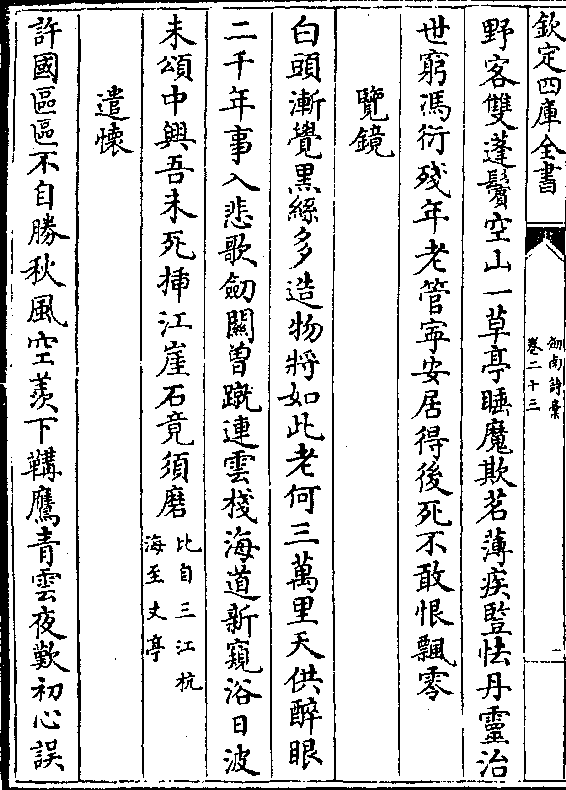 欽定四庫全書
劍南詩稾
卷二十三
二
野客雙蓬鬢空山一草亭睡魔欺茗薄疾豎怯丹靈治
世窮馮衍殘年老管寗安居得後死不敢恨飄零
覽鏡
白頭漸覺黑絲多造物將如此老何三萬里天供醉眼
二千年事入悲歌劒闗曽蹴連雲棧海道新窺浴日波
未頌中興吾未死揷江崖石竟須磨
比自三江杭
海至丈亭
遣懷
許國區區不自勝秋風空羨下鞲鷹青雲夜歎初心誤